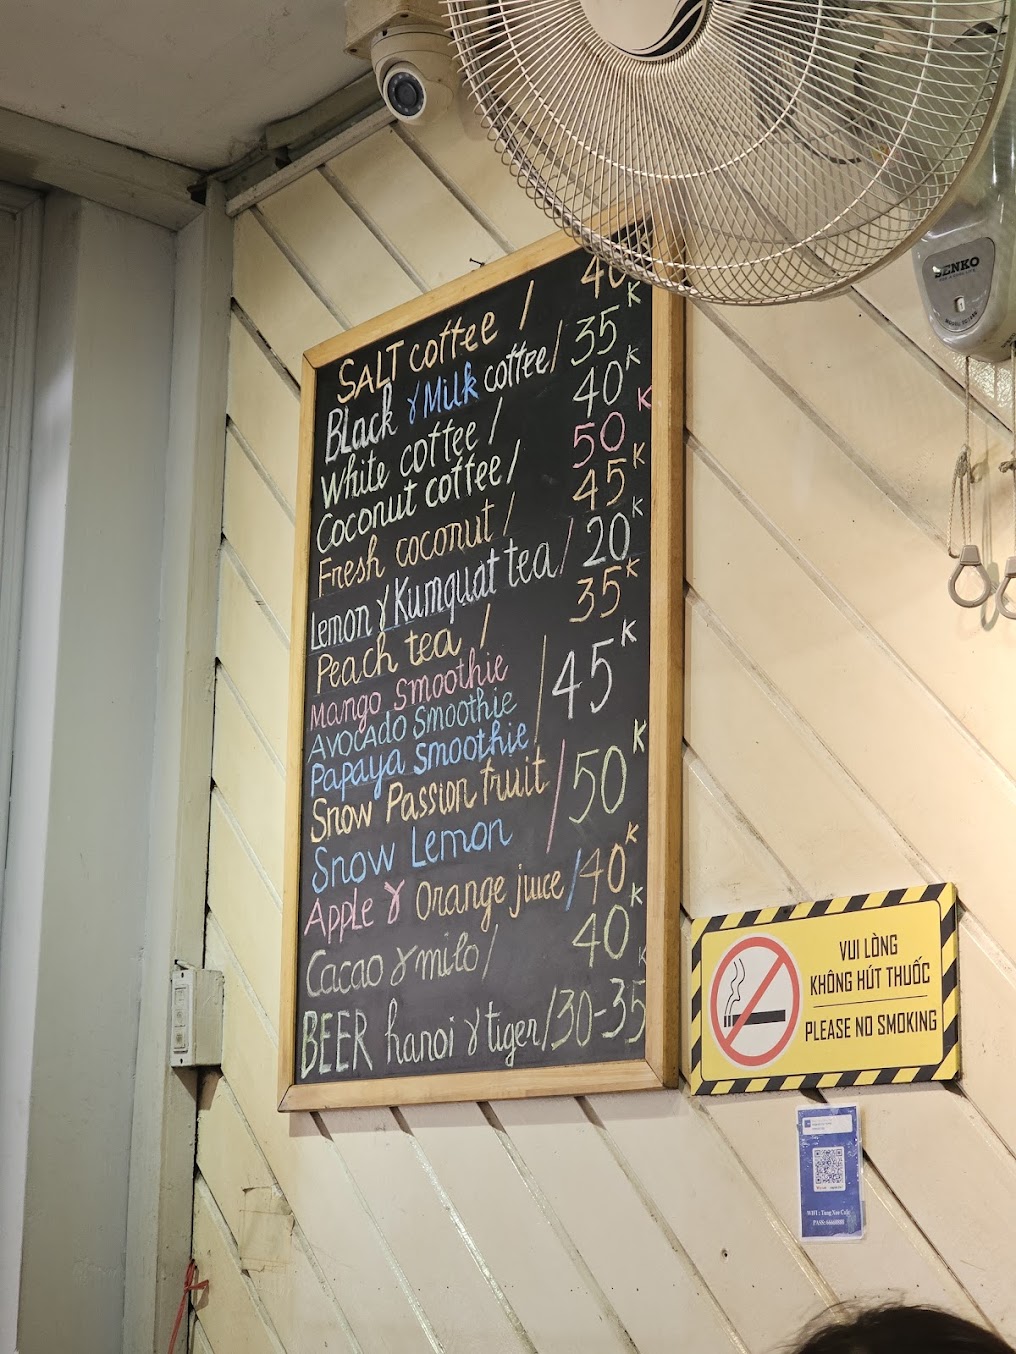 SALT coffee / 40
BLack & Milk coffee/ 35K
White coffee / 40K
Coconut coffee/ 50K
Fresh coconut / 45K
Lemon & Kumquat tea/ 20K
Peach tea / 35K
Mango Smoothie
Avocado Smoothie / 45K
Papaya Smoothie
Snow Passion fruit / 50K
Snow Lemon
Apple & Orange juice /40K
Cacao & milo/ 40K
BEER hanoi & tiger/30-35K
SENKO
VUI LÒNG
KHÔNG HÚT THUỐC
PLEASE NO SMOKING